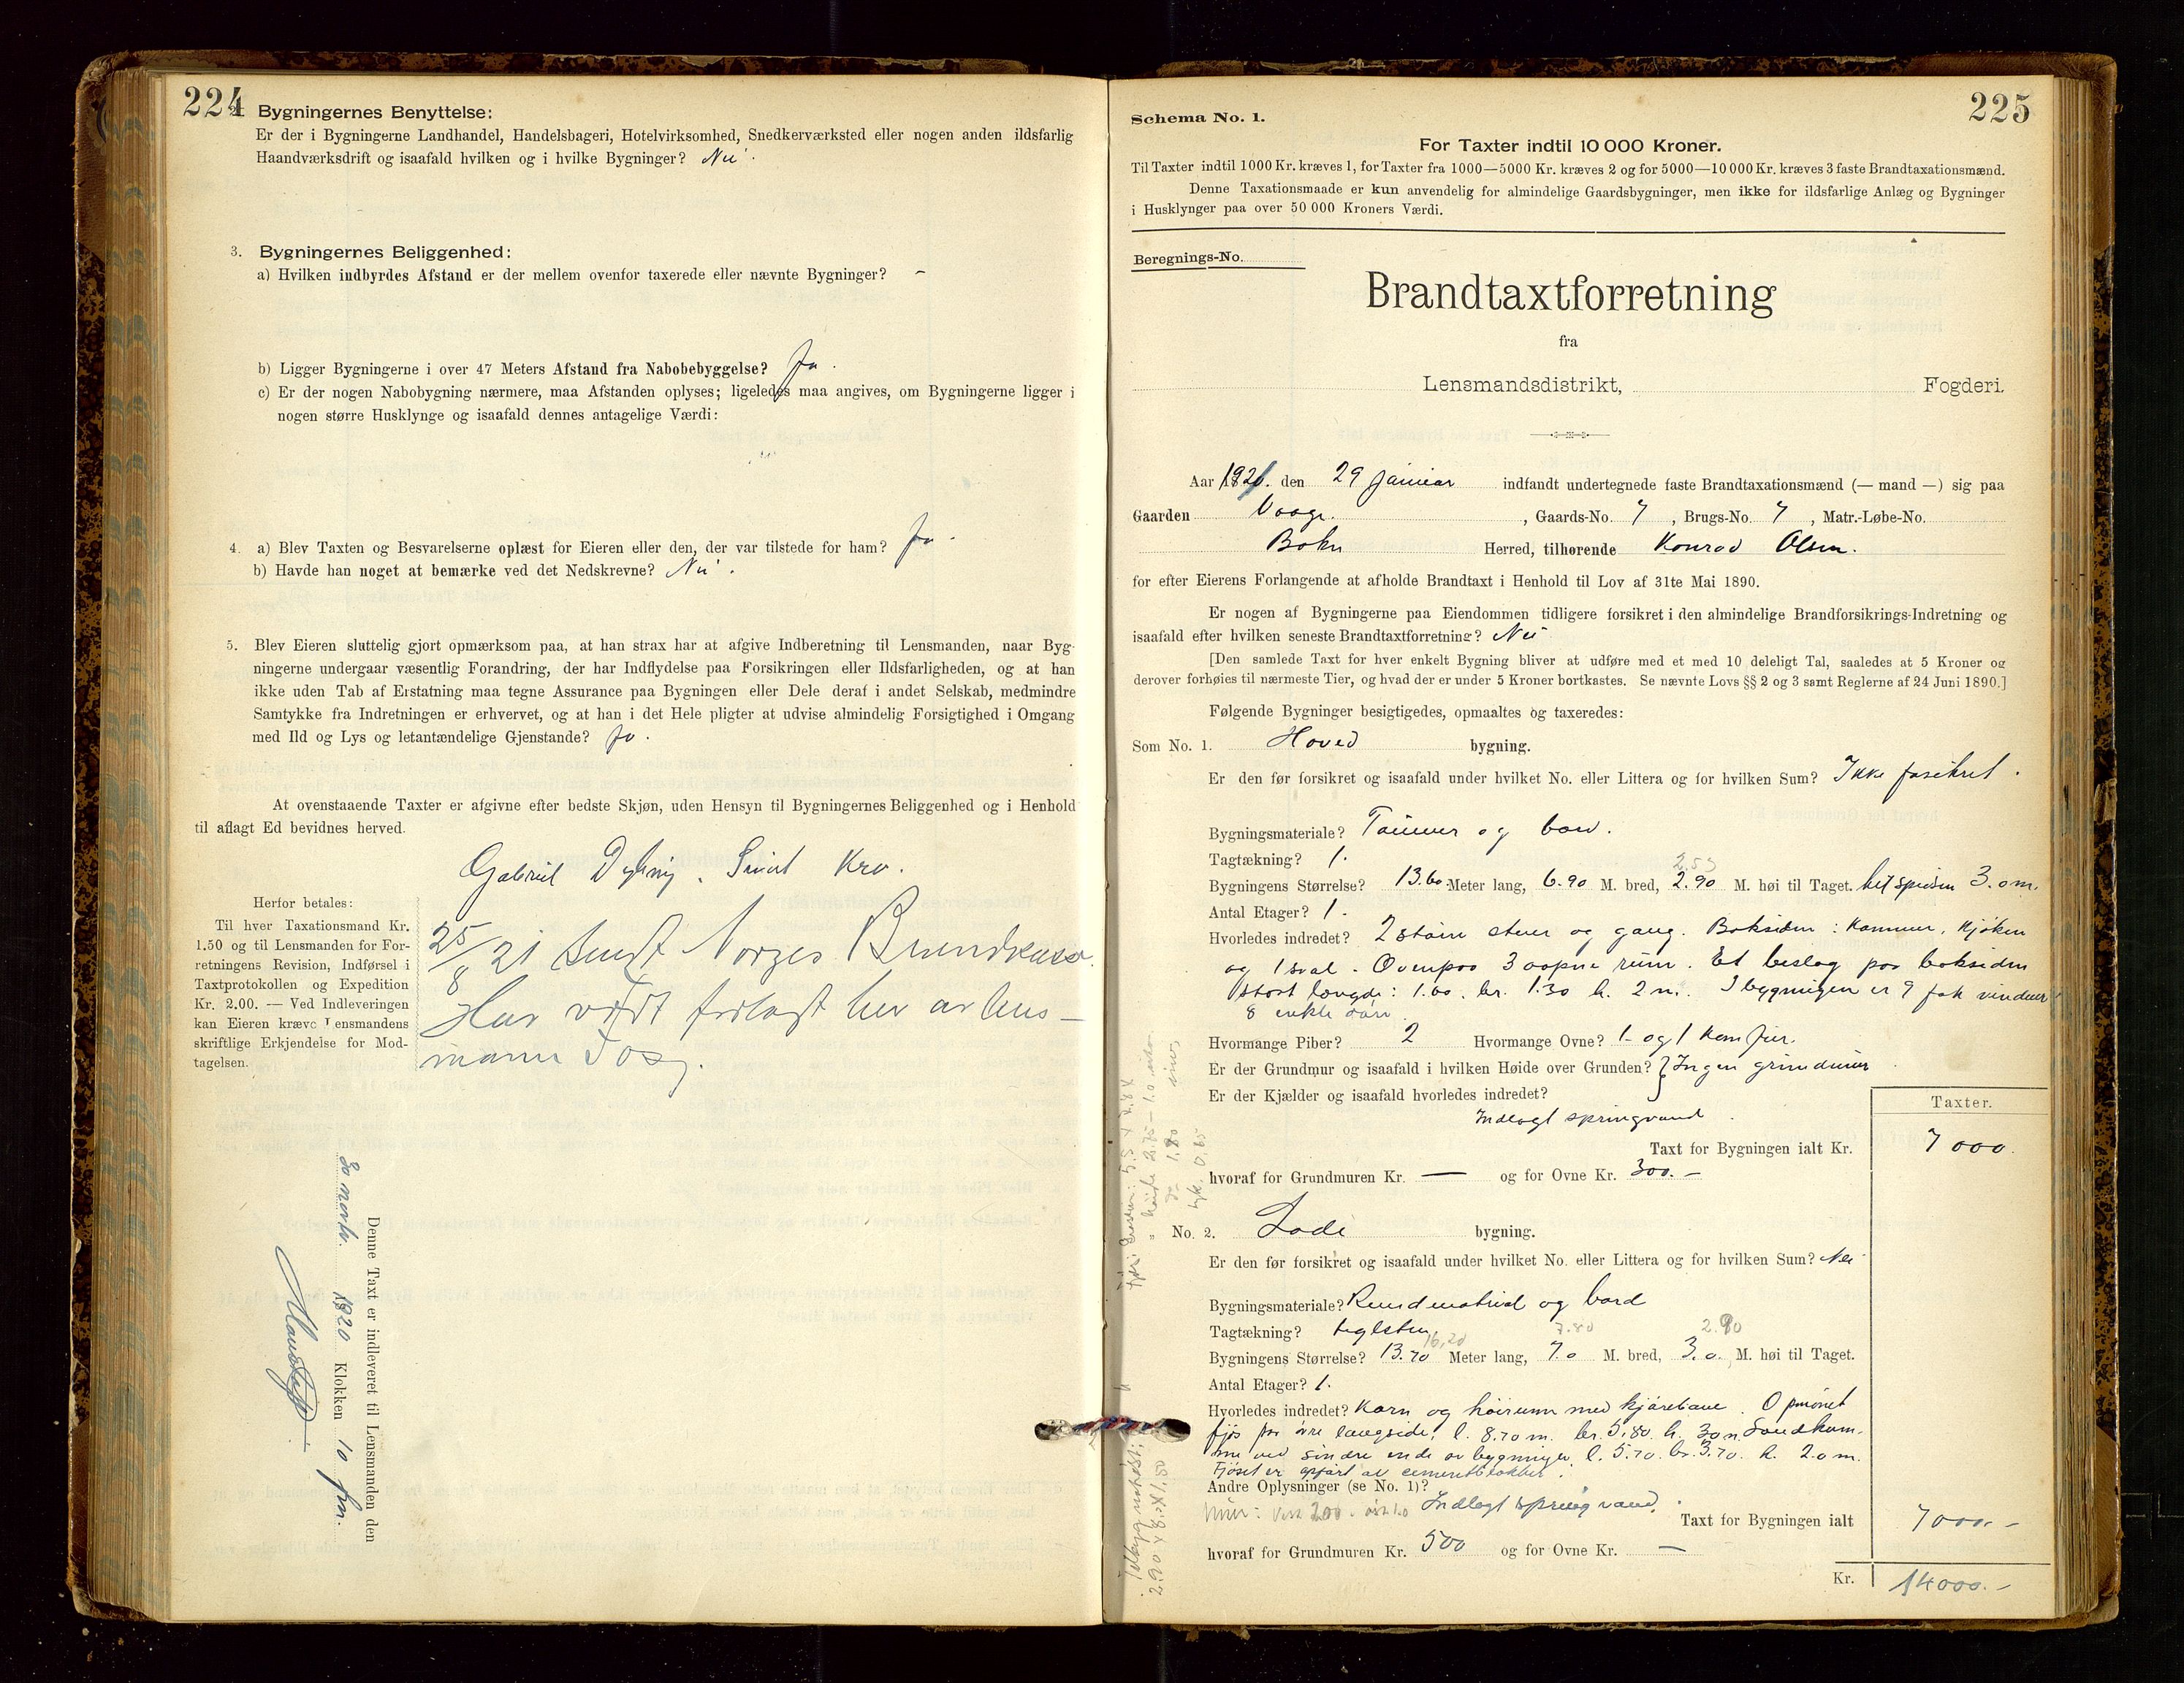 224
2. Bygningernes Benyttelse:
Er der i Bygningerne Landhandel, Handelsbageri, Hotelvirksomhed, Snedkerværksted eller nogen anden ildsfarlig
Haandværksdrift og isaafald hvilken og i hvilke Bygninger? Nei.
3. Bygningernes Beliggenhed:
a) Hvilken indbyrdes Afstand er der mellem ovenfor taxerede eller nævnte Bygninger? -
b) Ligger Bygningerne i over 47 Meters Afstand fra Nabobebyggelse? Ja.
c) Er der nogen Nabobygning nærmere, maa Afstanden oplyses; ligeledes maa angives, om Bygningerne ligger i
nogen større Husklynge og isaafald dennes antagelige Værdi:
4. a) Blev Taxten og Besvarelserne oplæst for Eieren eller den, der var tilstede for ham? Ja.
b) Havde han noget at bemærke ved det Nedskrevne? Nei.
5. Blev Eieren sluttelig gjort opmærksom paa, at han strax har at afgive Indberetning til Lensmanden, naar Byg-
ningerne undergaar væsentlig Forandring, der har Indflydelse paa Forsikringen eller Ildsfarligheden, og at han
ikke uden Tab af Erstatning maa tegne Assurance paa Bygningen eller Dele deraf i andet Selskab, medmindre
Samtykke fra Indretningen er erhvervet, og at han i det Hele pligter at udvise almindelig Forsigtighed i Omgang
med Ild og Lys og letantændelige Gjenstande? Ja.
At ovenstaaende Taxter er afgivne efter bedste Skjøn, uden Hensyn til Bygningernes Beliggenhed og i Henhold
til aflagt Ed bevidnes herved.
Gabriel
Herfor betales:
Til hver Taxationsmand Kr.
1.50 og til Lensmanden for For-
retningens Revision, Indførsel i
Taxtprotokollen og Expedition
Kr. 2.00. — Ved Indleveringen
kan Eieren kræve Lensmandens
skriftlige Erkjendelse for Mod-
tagelsen.
25/8 21 sendt Norges Brandkasse.
Har vært forlagt her av lens-
mann
Denne Taxt er indleveret til Lensmanden den
30 novbr. 1920 Klokken 10 fm.
225
Schema No. 1.
For Taxter indtil 10 000 Kroner.
Til Taxter indtil 1000 Kr. kræves 1, for Taxter fra 1000—5000 Kr. kræves 2 og for 5000—10 000 Kr. kræves 3 faste Brandtaxationsmænd.
Denne Taxationsmaade er kun anvendelig for almindelige Gaardsbygninger, men ikke for ildsfarlige Anlæg og Bygninger
i Husklynger paa over 50 000 Kroners Værdi.
Beregnings-No.
Brandtaxtforretning
fra
Lensmandsdistrikt, Fogderi.
Aar 1921. den 29 Januar indfandt undertegnede faste Brandtaxationsmænd (— mand —) sig paa
Gaarden Vaage. , Gaards-No. 7 , Brugs-No. 7 , Matr.-Løbe-No.
Bokn Herred, tilhørende Konrad Olsen.
for efter Eierens Forlangende at afholde Brandtaxt i Henhold til Lov af 31te Mai 1890.
Er nogen af Bygningerne paa Eiendommen tidligere forsikret i den almindelige Brandforsikrings-Indretning og
isaafald efter hvilken seneste Brandtaxtforretning? Nei
[Den samlede Taxt for hver enkelt Bygning bliver at udføre med et med 10 deleligt Tal, saaledes at 5 Kroner og
derover forhøies til nærmeste Tier, og hvad der er under 5 Kroner bortkastes. Se nævnte Lovs §§ 2 og 3 samt Reglerne af 24 Juni 1890.]
Følgende Bygninger besigtigedes, opmaaltes og taxeredes:
Som No. 1. Hoved bygning.
Er den før forsikret og isaafald under hvilket No. eller Littera og for hvilken Sum? Ikke forsikret.
Bygningsmateriale? Tømmer og bord.
Tagtækning? 1.
2.53
Bygningens Størrelse? 13.60 Meter lang, 6.90 M. bred, 2.90 M. høi til Taget. 3.0 m.
Antal Etager? 1.
Hvorledes indredet? 2 større stuer og gang. Baksiden: Kammer, Kjøken
og 1 sval. Ovenpaa 3 aapne rum. Et beslag paa baksiden
stort længde: 1.60. br. 1.30 h. 2 m. I bygningen er 9 fak vinduer
8 enkle døre.
Hvormange Piber? 2 Hvormange Ovne? 1- og 1 Komfur.
Er der Grundmur og isaafald i hvilken Høide over Grunden? } Ingen grundmur
Er der Kjælder og isaafald hvorledes indredet?
Indlagt springvand.
Taxter.
Taxt for Bygningen ialt Kr. 7000.
hvoraf for Grundmuren Kr. — og for Ovne Kr. 300.-
No. 2. Lade bygning.
Er den før forsikret og isaafald under hvilket No. eller Littera og for hvilken Sum? Nei
Bygningsmateriale? Rundmatrial og bord
Tagtækning? teglsten
16,20 7.80 2.90
Bygningens Størrelse? 13.70 Meter lang, 7.0 M. bred, 3.0. M. høi til Taget.
Antal Etager? 1.
Hvorledes indredet? Korn og høirum med kjørebane. Opmuret
fjøs paa øvre langside, l. 8.70 m. br. 5,80. h. 30 m.
ved søndre ende av bygningen, l. 5.70. br. 3.70. h. 2.0 m.
Fjøset er opført av cementblokker.
Andre Oplysninger (se No. 1)?
Indlagt springvand.
Taxt for Bygningen ialt 7000.-
hvoraf for Grundmuren Kr. 500 og for Ovne Kr. —
Kr. 14000.-